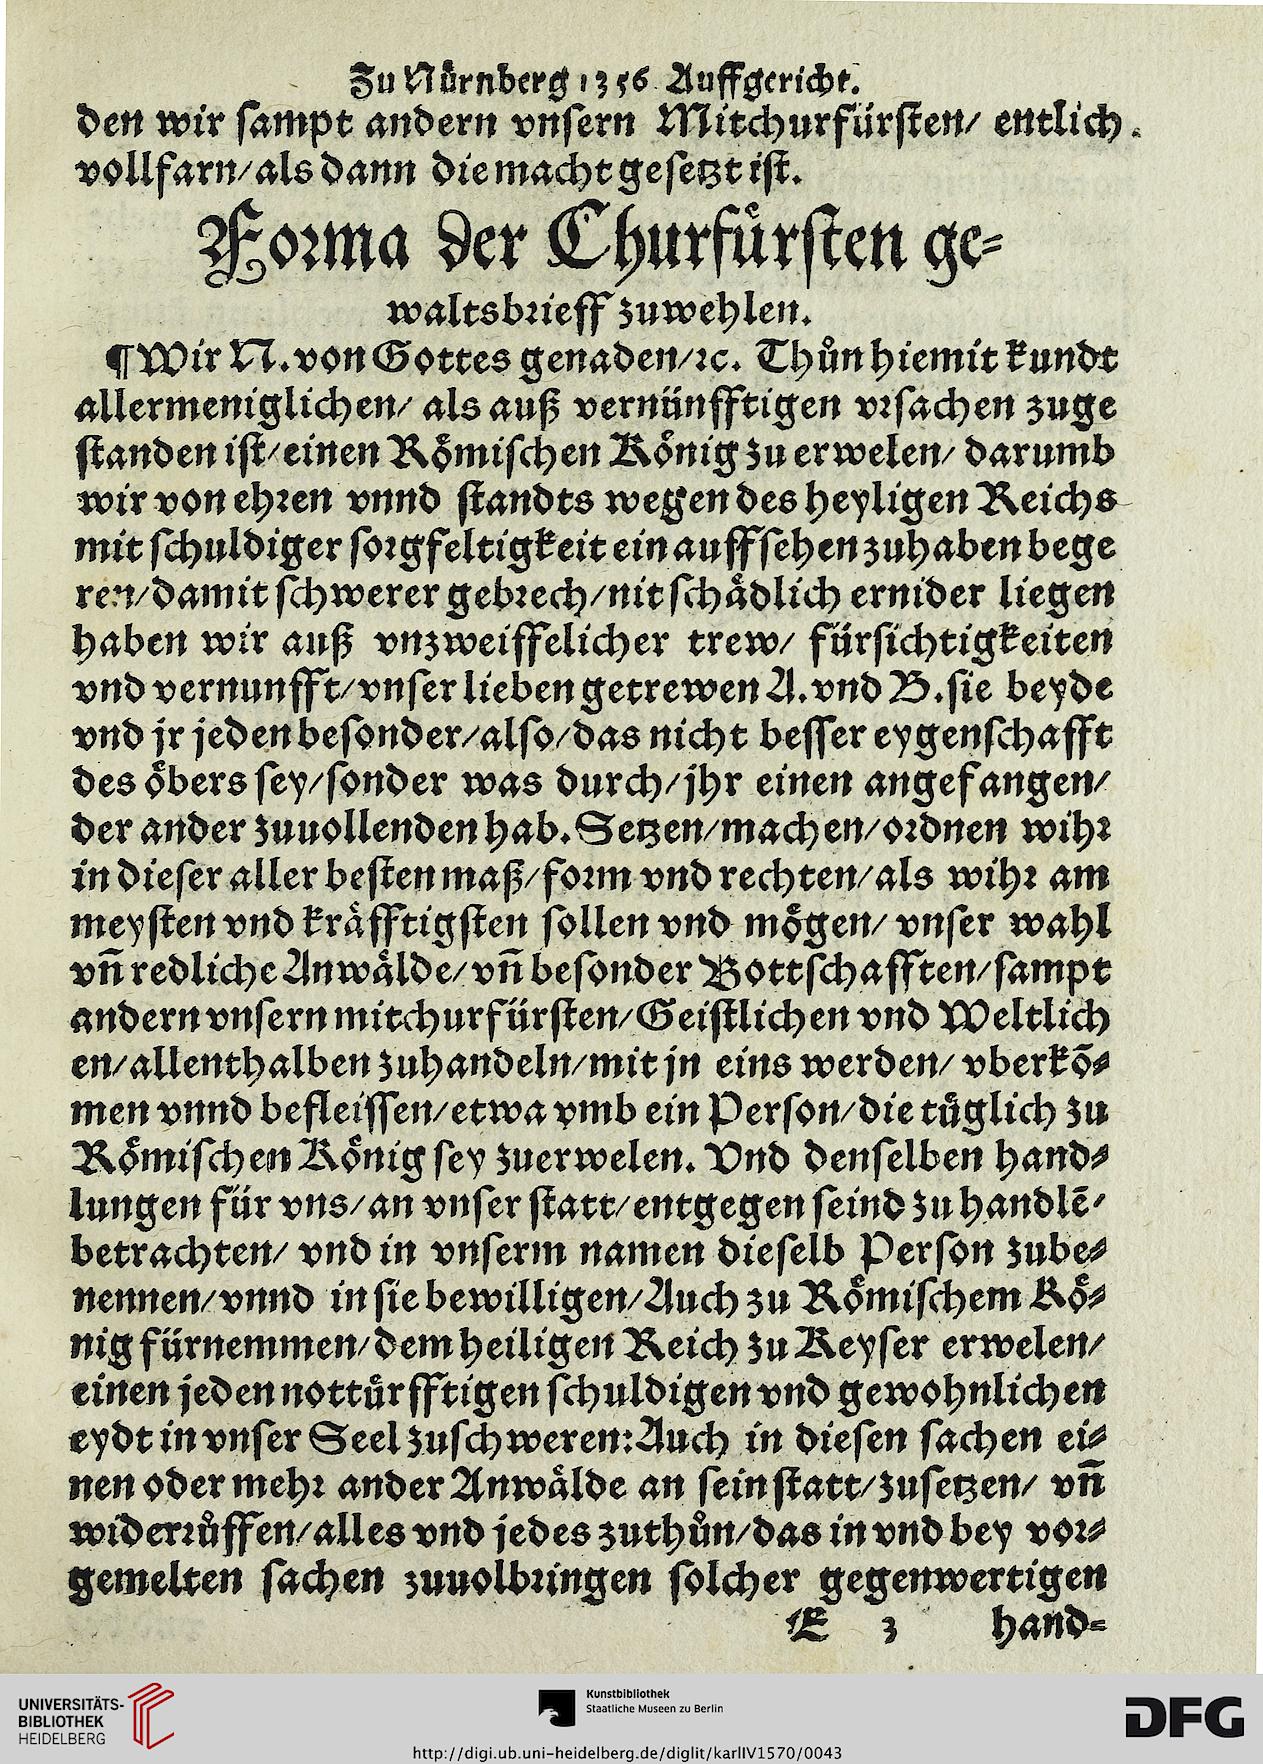 Zu Nuͤrnberg 1356 Auffgericht.
den wir ſampt andern vnſern Mitchurfürſten/ entlich.
vollfarn/ als dann die macht geſetzt iſt.
Forma der Churfuͤrſten ge⸗
waltsbrieff zuwehlen.
¶ Wir N. von Gottes genaden/ ꝛc. Thůn hiemit kundt
allermeniglichen/ als auß vernünfftigen vrſachen zuge
ſtanden iſt/ einen Roͤmiſchen Koͤnig zu erwelen/ darumb
wir von ehren vnnd ſtandts wegen des heyligen Reichs
mit ſchuldiger ſorgfeltigkeit ein auffſehen zuhaben bege
ren/ damit ſchwerer gebrech/ nit ſchaͤdlich ernider liegen
haben wir auß vnzweiffelicher trew/ fürſichtigkeiten
vnd vernunfft/ vnſer lieben getrewen A. vnd B. ſie beyde
vnd jr jeden beſonder/ alſo/ das nicht beſſer eygenſchafft
des oͤbers ſey/ ſonder was durch/ jhr einen angefangen/
der ander zuuollenden hab. Setzen/ machen/ ordnen wihr
in dieſer aller beſten maß/ form vnd rechten/ als wihr am
meyſten vnd kraͤfftigſten ſollen vnd moͤgen/ vnſer wahl
vñ redliche Anwaͤlde/ vñ beſonder Bottſchafften/ ſampt
andern vnſern mitchurfürſten/ Geiſtlichen vnd Weltlich
en/ allenthalben zuhandeln/ mit jn eins werden/ vberkõ⸗
men vnnd befleiſſen/ etwa vmb ein Perſon/ die tuͤglich zu
Roͤmiſchen Koͤnig ſey zuerwelen. Vnd denſelben hand⸗
lungen für vns/ an vnſer ſtatt/ entgegen ſeind zu handlẽ/
betrachten/ vnd in vnſerm namen dieſelb Perſon zube⸗
nennen/ vnnd in ſie bewilligen/ Auch zu Roͤmiſchem Koͤ⸗
nig fürnemmen/ dem heiligen Reich zu Keyſer erwelen/
einen jeden nottuͤrfftigen ſchuldigen vnd gewohnlichen
eydt in vnſer Seel zuſchweren: Auch in dieſen ſachen ei⸗
nen oder mehr ander Anwaͤlde an ſein ſtatt/ zuſetzen/ vñ
widerrůffen/ alles vnd jedes zuthůn/ das in vnd bey vor⸗
gemelten ſachen zuuolbringen ſolcher gegenwertigen
E 3 hand⸗
UNIVERSITÄTS-
BIBLIOTHEK
HEIDELBERG
Kunstbibliothek
Staatliche Museen zu Berlin
DFG
http://digi.ub.uni-heidelberg.de/diglit/karlIV1570/0043